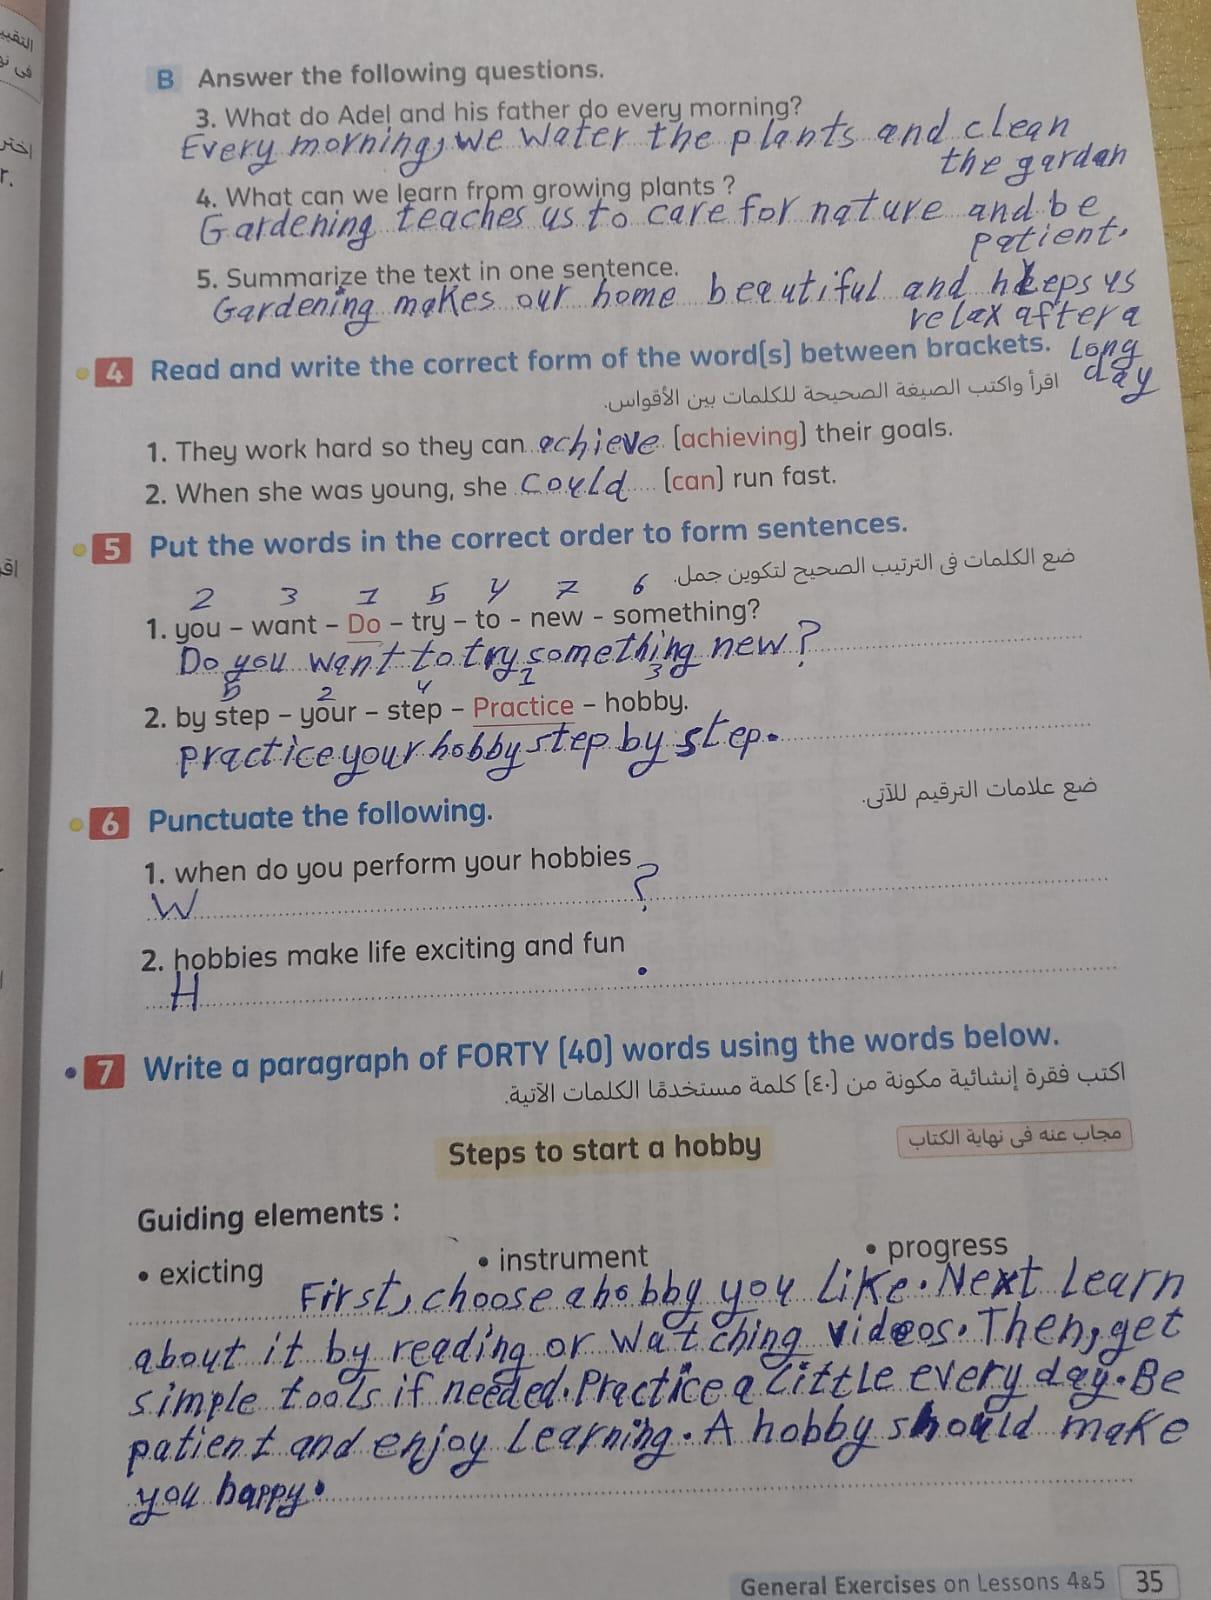 التقيي
فى نه
اختر
r.
اق
B Answer the following questions.
3. What do Adel and his father do every morning?
Every morning, we water the plants and clean
the gardan
4. What can we learn from growing plants ?
Gardening teaches us to care for nature and be
patient.
5. Summarize the text in one sentence.
Gardening makes our home beautiful and helps us
relax after a
long
day
4 Read and write the correct form of the word(s) between brackets.
اقرأ واكتب الصيغة الصحيحة للكلمات بين الأقواس.
1. They work hard so they can achieve (achieving) their goals.
2. When she was young, she could (can) run fast.
5 Put the words in the correct order to form sentences.
ضع الكلمات فى الترتيب الصحيح لتكوين جمل.
2 3 1 5 4 7 6
1. you – want – Do – try – to - new - something?
Do you want to try something new?
5 2 4 1 3
2. by step – your – step – Practice – hobby.
practice your hobby step by step.
6 Punctuate the following.
ضع علامات الترقيم للآتى.
1. when do you perform your hobbies
W ?
2. hobbies make life exciting and fun
H .
7 Write a paragraph of FORTY (40) words using the words below.
اكتب فقرة إنشائية مكونة من (٤٠) كلمة مستخدمًا الكلمات الآتية.
Steps to start a hobby
مجاب عنه فى نهاية الكتاب
Guiding elements :
• exicting • instrument • progress
First, choose a hobby you like. Next learn
about it by reading or watching videos. Then, get
simple tools if needed. Practice a little every day. Be
patient and enjoy learning. A hobby should make
you happy.
General Exercises on Lessons 4&5 35